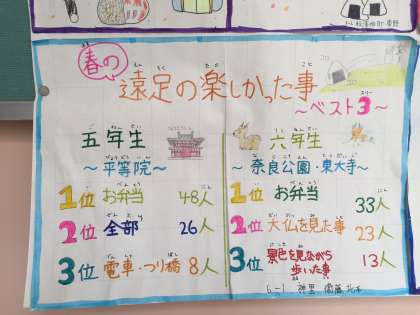 春の
遠足の楽しかった事
～ベスト3～
五年生
～平等院～
1位 お弁当 48人
2位 全部 26人
3位 電車・つり橋 8人
六年生
～奈良公園・東大寺～
1位 お弁当 33人
2位 大仏を見た事 23人
3位 景色を見ながら
歩いた事 13人
6-1